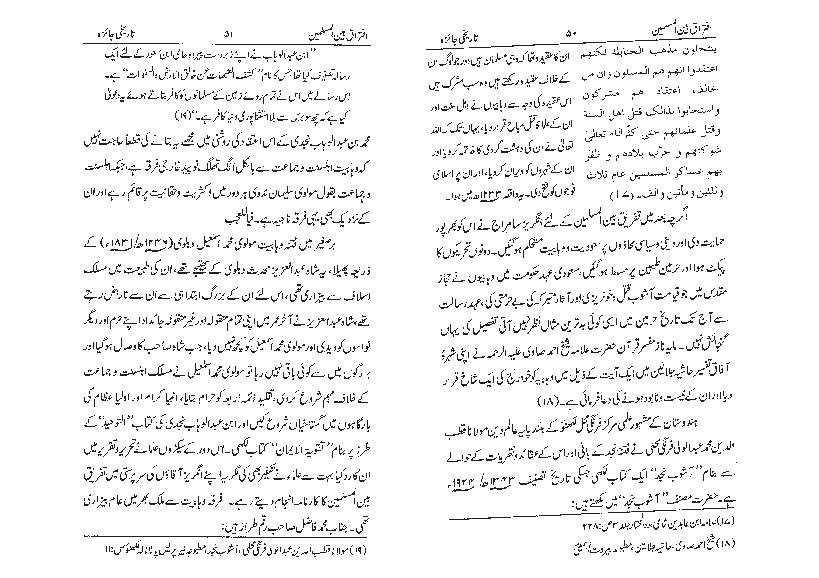 افتراق بین المسلمین ۵۰ تاریخی جائزہ
ینتحلون مذهب الحنابلة لکنهم
اعتقدوا انهم هم المسلمون وان من
خالف اعتقاد هم مشرکون
واستحابوا بذالک قتل اهل السنة
وقتل علمائهم حتی کسر الله تعالیٰ
شوکتهم و خرّب بلادهم و ظفر
بهم عساکر المسلمین عام ثلاث
وثلثین ومأتین والف۔ (۱۷)
ان کا عقیدہ تھا کہ وہی مسلمان ہیں اور جو لوگ ان
کے خلاف عقیدہ رکھتے ہیں وہ سب مشرک ہیں
اس عقیدہ کی وجہ سے وہابیوں نے اہل سنت اور
ان کے علماء کا قتل مباح قرار دیا، یہاں تک کہ اللہ
تعالیٰ نے ان کی دہشت گردی کا خاتمہ کر دیا اور
ان کے شہروں کو ویران کر دیا، اور ان پر اسلامی
فوجوں کو فتح دی۔ یہ واقعہ ۱۲۳۳ھ میں ہوا۔
اگرچہ بعد میں تفریق بین المسلمین کے لئے انگریز سامراج نے اس کو بھر پور
حمایت دی اور دینی وسیاسی محاذوں پر سعودیت و وہابیت مستحکم ہو گئیں۔ دونوں تحریکوں کا
پیکٹ ہوا اور حرمین طیبین پر مسلط ہو گئیں، سعودی عہد حکومت میں وہابیوں نے حجاز
مقدس میں جو قیامت آشوب قتل وخونریزی اور آثار متبرکہ کی بے حرمتی کی، عہد رسالت
سے آج تک تاریخ حرمین میں ایسی کوئی بدترین مثال نظر نہیں آتی تفصیل کی یہاں
گنجائش نہیں۔ مایہ ناز مفسر قرآن حضرت علامہ شیخ احمد صاوی علیہ الرحمہ نے اپنی شہرۂ
آفاق تفسیر حاشیہ جلالین میں ایک آیت کے ذیل میں وہابیہ کو خوارج کی ایک شاخ قرار
دیا اور ان کے نیست ونابود ہونے کی دعا فرمائی ہے۔ (۱۸)
ہندوستان کے مشہور علمی مرکز فرنگی محل لکھنؤ کے بلند پایہ عالم دین مولانا قطب
الدین محمد عبد الوالی فرنگی محلی نے فتنۂ نجد کے بانی اور اس کے عقائد ونظریات کے حوالے
سے بنام "آشوب نجد" ایک کتاب لکھی جسکی تاریخ تصنیف ۱۳۴۳ھ/۱۹۲۴ء
ہے۔ حضرت مصنف "آشوب نجد" میں لکھتے ہیں:
(۱۷) علامہ ابن عابدین شامی، رد المحتار جلد ۳ ص: ۳۳۸
(۱۸) شیخ احمد صاوی، حاشیہ جلالین، مطبوعہ بیروت/بمبئی
افتراق بین المسلمین ۵۱ تاریخی جائزہ
"ابن عبد الوہاب نے اپنے زبردست پیرو و حامی ابن سعود کے لئے ایک
رسالہ تصنیف کیا تھا جس کا نام "کشف الشبہات عن خالق الارض والسموات" ہے۔
اس رسالے میں اس نے تمام روئے زمین کے مسلمانوں کو کافر بتاتے ہوئے یہ دعویٰ
کیا ہے کہ چھ سو برس سے بلا استثنا پوری دنیا کافر ہے۔" (۱۹)
محمد بن عبد الوہاب نجدی کے اس اعتقاد کی روشنی میں مجھے یہ بتانے کی قطعاً حاجت نہیں
کہ وہابیت اہلسنت و جماعت سے بالکل الگ تھلگ نوپید خارجی فرقہ ہے، جبکہ اہلسنت
و جماعت بقول مولوی سلیمان ندوی ہر دور میں اکثریت وحقانیت پر قائم رہے اور ان
کے نزدیک بھی یہی فرقہ ناجیہ ہے۔ فیاللعجب
برصغیر میں فتنۂ وہابیت مولوی محمد اسمٰعیل دہلوی (۱۲۴۶ھ/۱۸۳۱ء) کے
ذریعہ پھیلا، یہ شاہ عبد العزیز محدث دہلوی کے بھتیجے تھے، ان کی طبیعت میں مسلک
اسلاف سے بیزاری تھی، اس لئے ان کے بزرگ ابتدا ہی سے ان سے ناراض رہتے
تھے، شاہ عبد العزیز نے آخر عمر میں اپنی تمام منقولہ وغیر منقولہ جائداد اپنے حرم اور دیگر
نواسوں کو دیدی اور مولوی محمد اسمٰعیل کو کچھ نہیں دیا، جب شاہ صاحب کا وصال ہو گیا اور
بزرگوں میں سے کوئی باقی نہیں رہا تو مولوی محمد اسمٰعیل نے مسلک اہلسنت و جماعت
کے خلاف مہم شروع کر دی، تقلید ائمہ اربعہ کو حرام بتایا، انبیا کرام اور اولیا عظام کی
بارگاہوں میں گستاخیاں شروع کیں اور ابن عبد الوہاب نجدی کی کتاب "التوحید" کے
طرز پر بنام "تقویۃ الایمان" کتاب لکھی۔ اس دور کے سیکڑوں علماء نے تحریر وتقریر میں
ان کا رد کیا بہت سے علماء نے تکفیر بھی کی مگر یہ اپنے انگریز آقاؤں کی سرپرستی میں تفریق
بین المسلمین کا کارنامہ انجام دیتے رہے۔ فرقۂ وہابیت سے ملک بھر میں عام بیزاری
تھی۔ جناب محمد فاضل صاحب رقم طراز ہیں:
(۱۹) مولانا قطب الدین عبد الوالی فرنگی محلی، آشوب نجد، مطبوعہ پریس پاٹا نالہ لکھنؤ ص: ۱۱